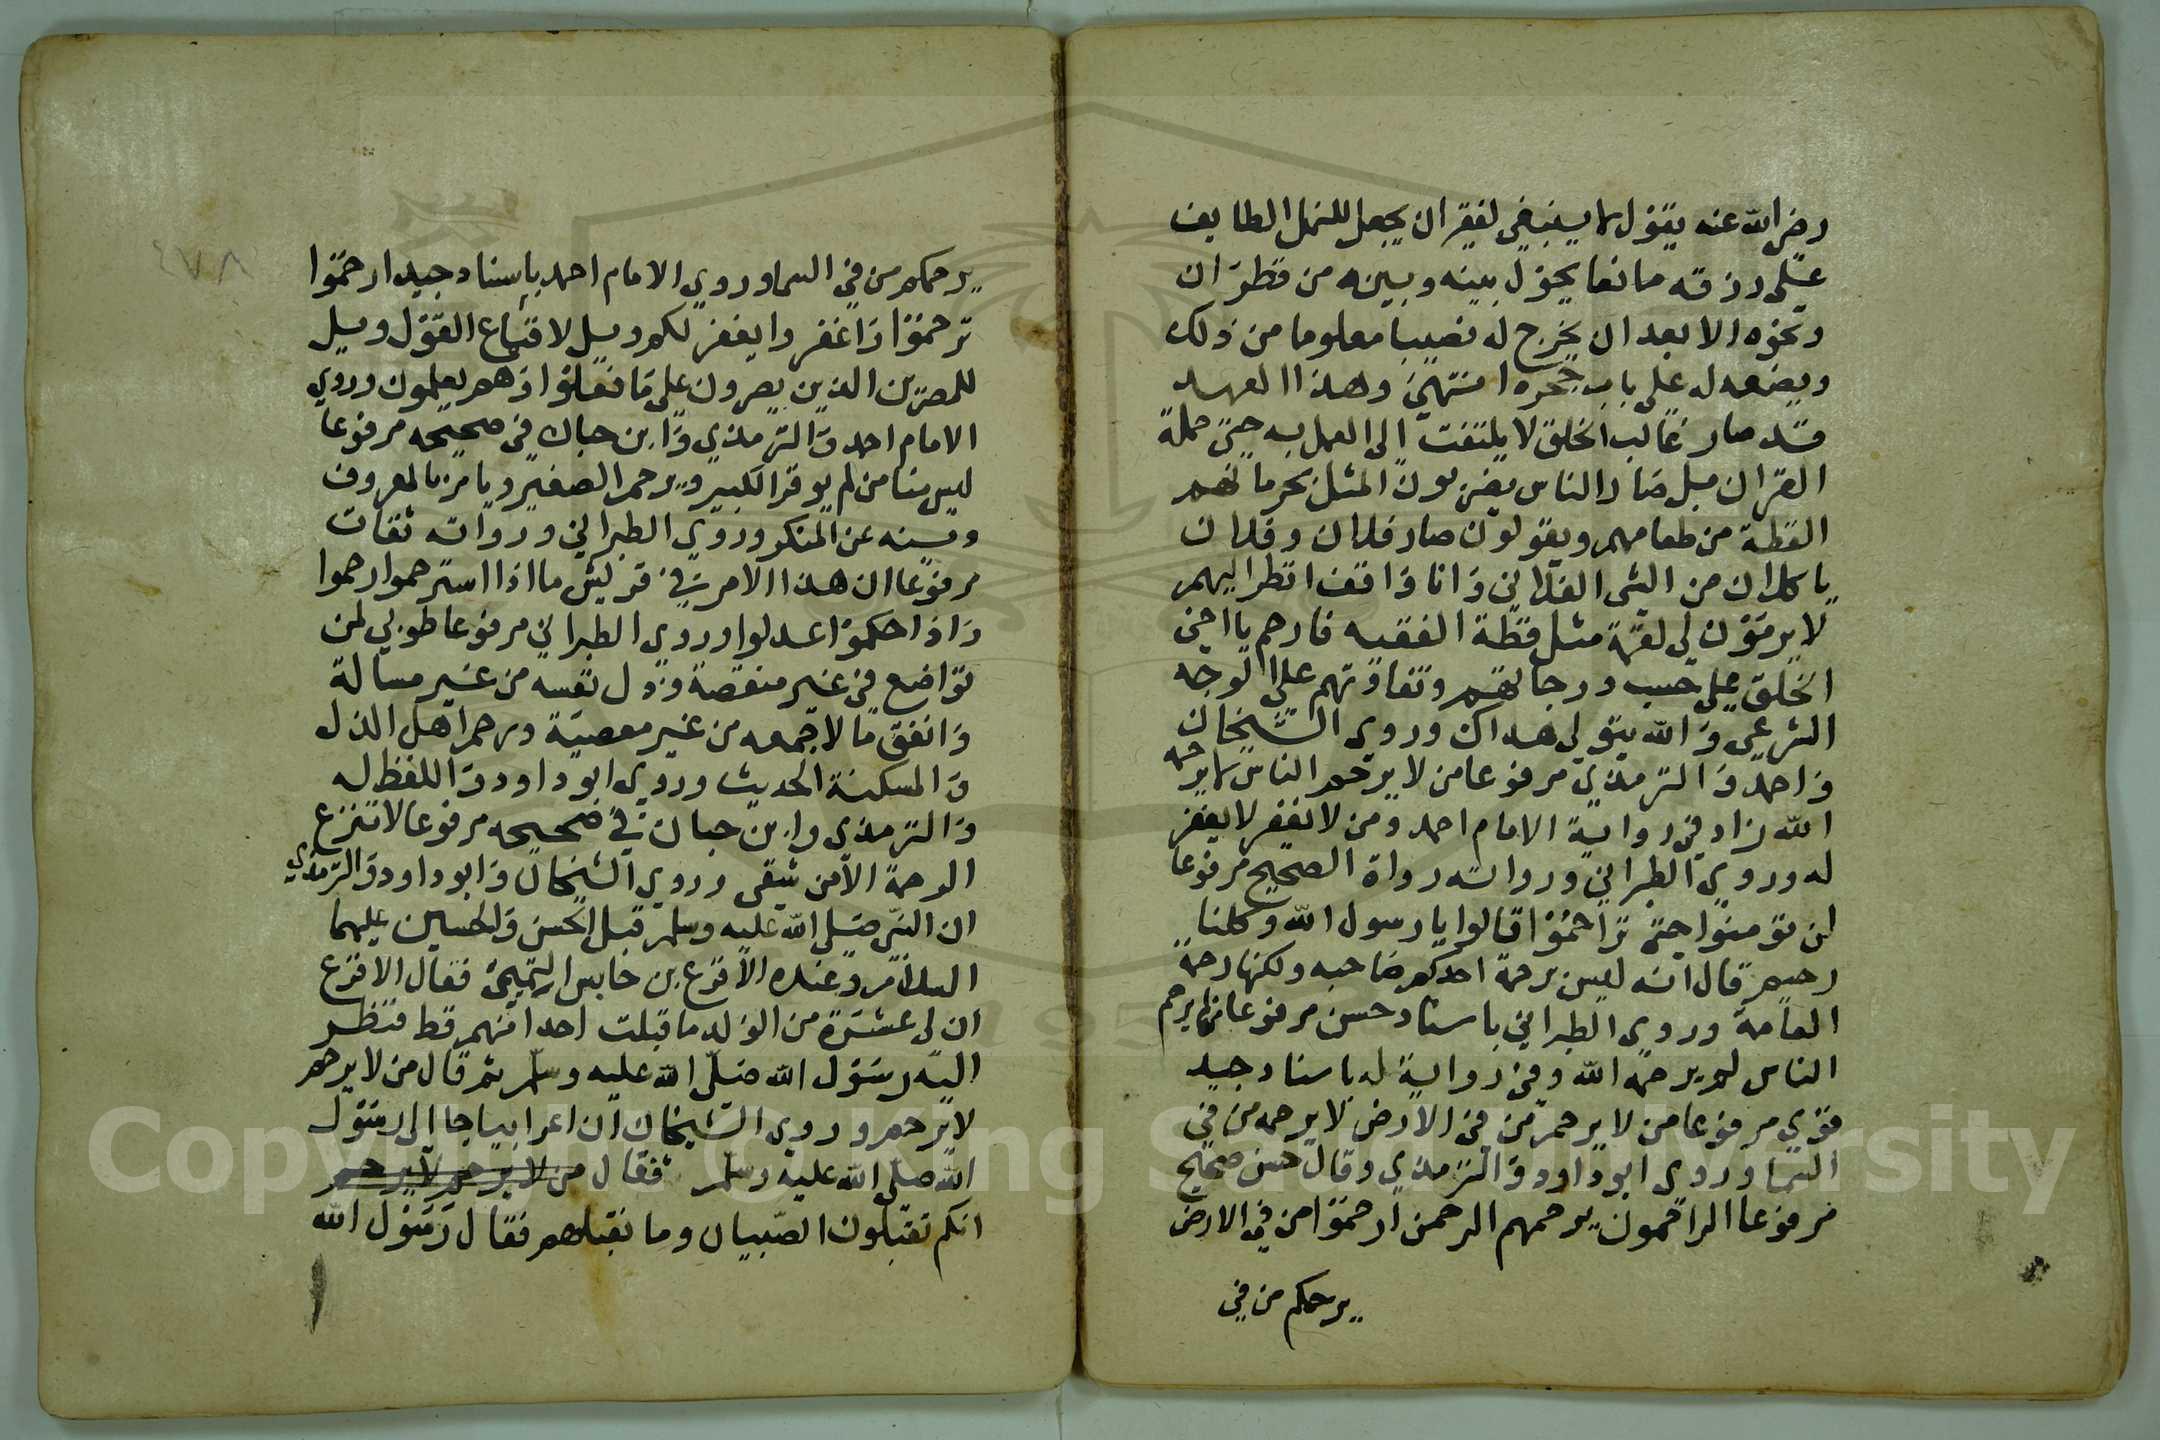 رضي الله عنه يقول لا ينبغي لفقير ان يجعل للنمل الطايف
على رزقه مانعا يحول بينه وبينه من قطران
ونحوه الا بعد ان يخرج له نصيبا معلوما من ذلك
ويضعه له على باب جحره انتهى وهذا العهد
قد صار غالب الخلق لا يلتفت الى العمل به حتى حملة
القران بل صار الناس يضربون المثل بحرمانهم
القطة من طعامهم ويقولون صار فلان وفلان
ياكلان من الشي الفلاني وانا واقف انظر اليهم
لا يرمون لي لقمة مثل قطة الفقيه فارحم يا اخي
الخلق على حسب درجاتهم وتفاوتهم على الوجه
الشرعي والله يتولى هداك وروي الشيخان
واحمد والترمذي مرفوعا من لا يرحم الناس لا يرحمه
الله زاد في رواية الامام احمد ومن لا يغفر لا يغفر
له وروي الطبراني ورواته رواة الصحيح مرفوعا
لن تؤمنوا حتى تراحموا قالوا يا رسول الله وكلنا
رحيم قال انه ليس برحمة احدكم صاحبه ولكنها رحمة
العامة وروي الطبراني باسناد حسن مرفوعا من لم يرحم
الناس لم يرحمه الله وفي رواية له باسناد جيد
قوي مرفوعا من لا يرحم من في الارض لا يرحمه من في
السما وروي ابو داود والترمذي وقال حسن صحيح
مرفوعا الراحمون يرحمهم الرحمن ارحموا من في الارض
يرحمكم من في
٤٧٨
يرحمكم من في السما وروي الامام احمد باسناد جيد ارحموا
ترحموا واغفروا يغفر لكم ويل لاقماع القول ويل
للمصرين الذين يصرون على ما فعلوا وهم يعلمون وروي
الامام احمد والترمذي وابن حبان في صحيحه مرفوعا
ليس منا من لم يوقر الكبير ويرحم الصغير ويامر بالمعروف
وينه عن المنكر وروي الطبراني ورواته ثقات
مرفوعا ان هذا الامر في قريش ما اذا استرحموا رحموا
واذا حكموا عدلوا وروي الطبراني مرفوعا طوبى لمن
تواضع في غير منقصة وذل نفسه من غير مسالة
وانفق مالا جمعه من غير معصية ورحم اهل الذل
والمسكنة الحديث وروي ابو داود واللفظ له
والترمذي وابن حبان في صحيحه مرفوعا لا تنزع
الرحمة الا من شقي وروي الشيخان وابو داود والترمذي
ان النبي صلى الله عليه وسلم قبل الحسن والحسين عليهما
السلام وعنده الاقرع بن حابس التميمي فقال الاقرع
ان لي عشرة من الولد ما قبلت احدا منهم قط فنظر
اليه رسول الله صلى الله عليه وسلم ثم قال من لا يرحم
لا يرحم وروي الشيخان ان اعرابيا جا الى رسول
الله صلى الله عليه وسلم فقال من لا يرحم لا يرحم
انكم تقبلون الصبيان وما نقبلهم فقال رسول الله
Copyright © King Saud University
1957